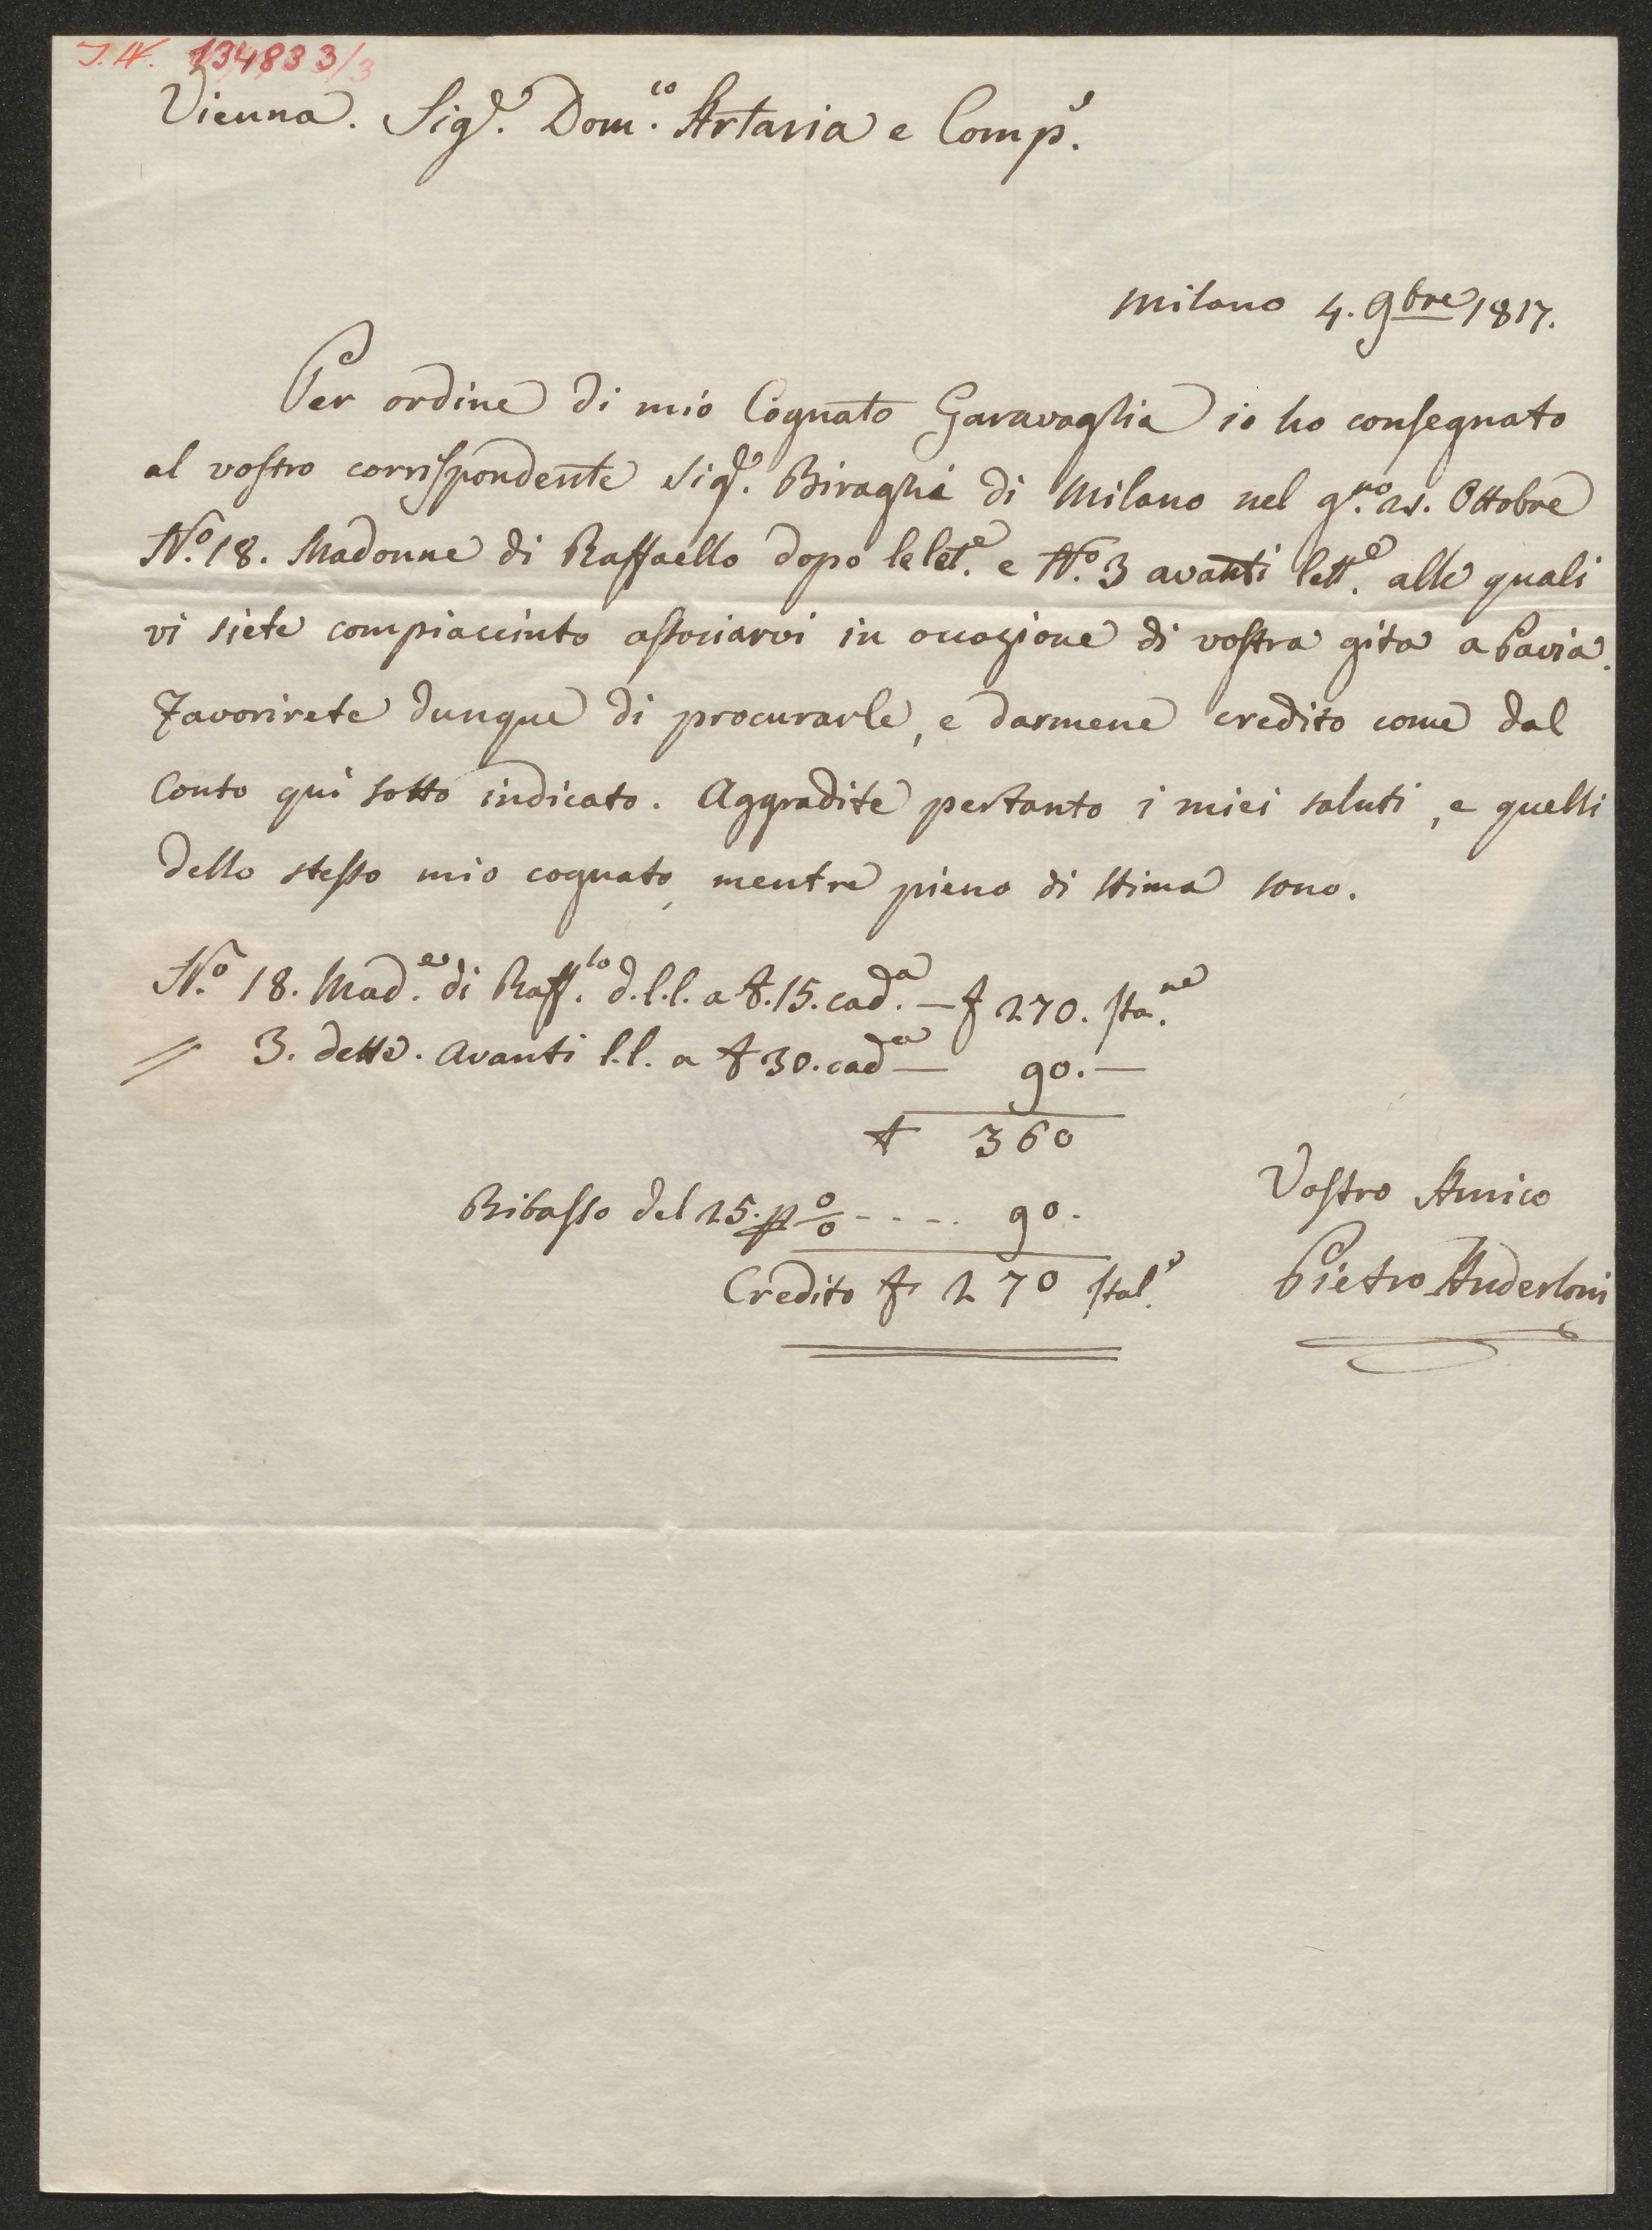 J.N. 134833/3
Vienna. Sig.r Dom.co Artaria e Comp.i
Milano 4. 9bre 1817.
Per ordine di mio Cognato Garavaglia io ho consegnato
al vostro corrispondente Sig.r Biraghi di Milano nel g.no 21. Ottobre
N.o 18. Madonne di Raffaello dopo le let.e e N.o 3 avanti lett.e alle quali
vi siete compiacciuto associarvi in occasione di vostra gita a Pavia.
Favorirete dunque di procurarle, e darmene credito come dal
Conto qui sotto indicato. Aggradite pertanto i miei saluti, e quelli
dello stesso mio cognato, mentre pieno di stima sono.
N.o 18. Mad.e di Raff.lo d.l.l. a f.15. cad.a — f 270. Ita.ne
" 3. dette. avanti l.l. a f 30. cad.a — 90.—
f 360
Ribasso del 25. p% - - - - 90.
Credito f 270 Ital.e
Vostro Amico
Pietro Anderloni